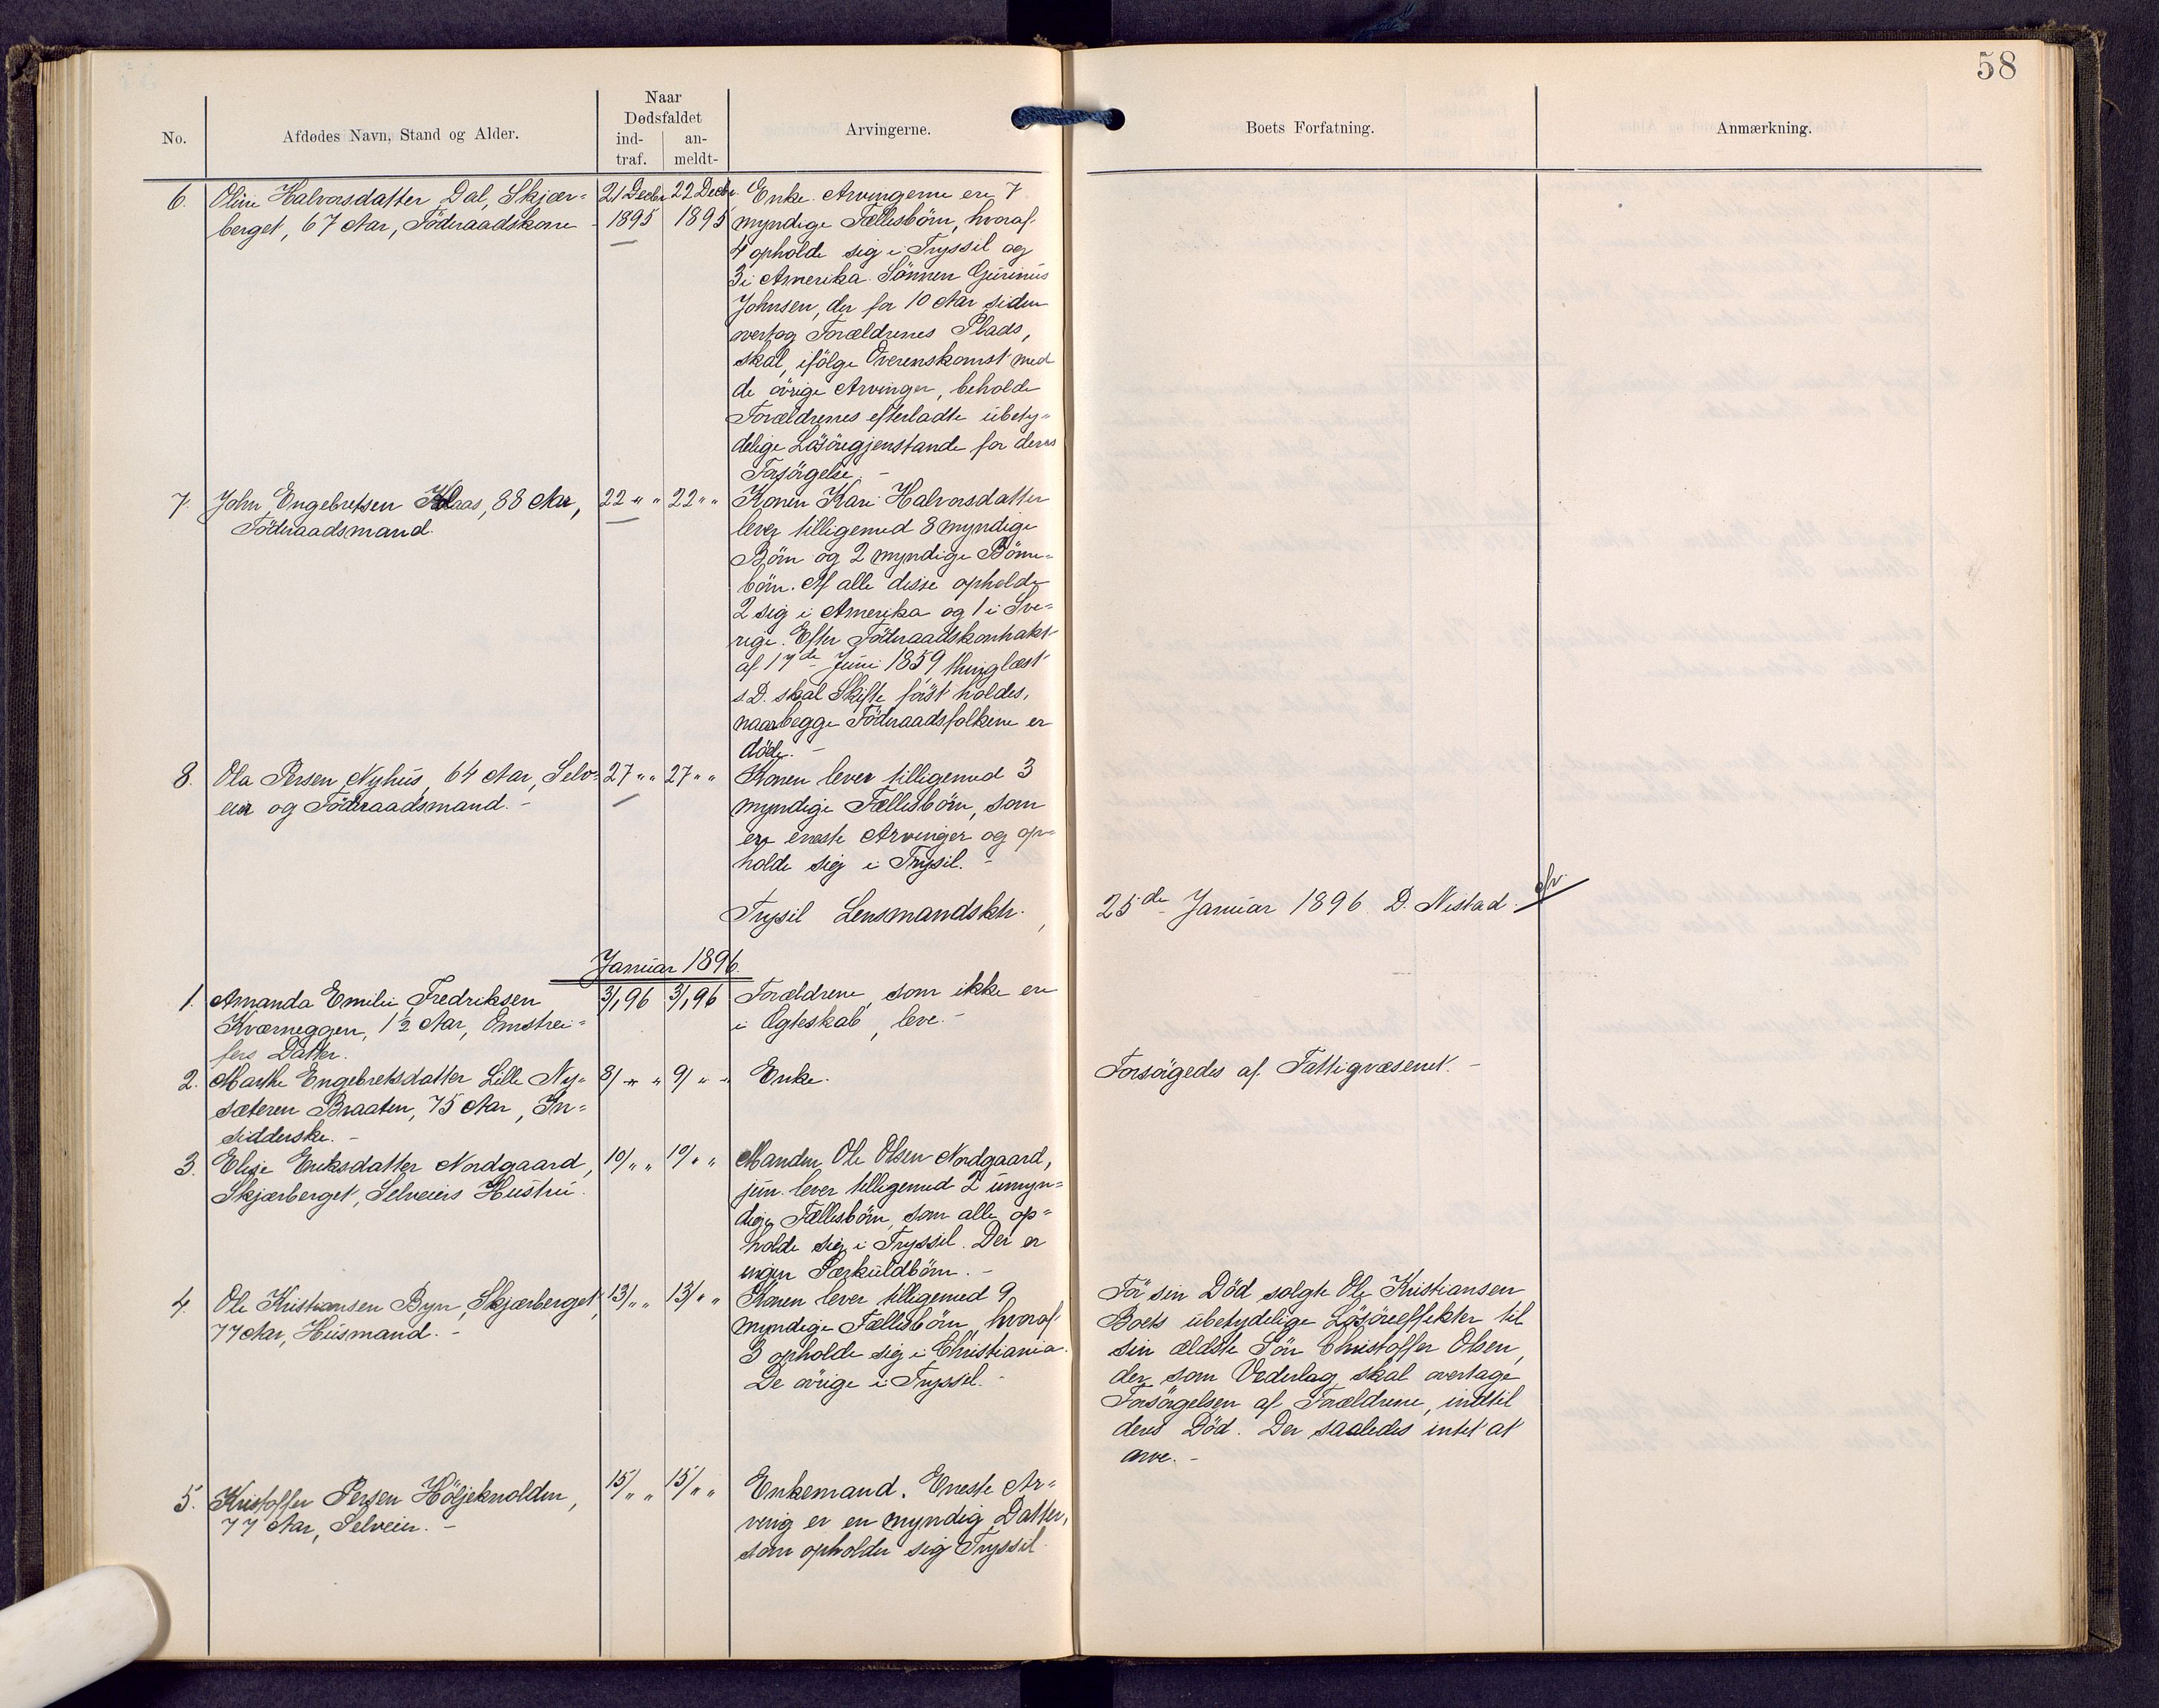 58
No.
Afdødes Navn, Stand og Alder.
Naar
Dødsfaldet
ind-
traf.
an-
meldt-
Arvingerne.
Boets Forfatning.
Anmærkning.
6.
Oline Halvorsdatter Dal, Skjær-
berget, 67 Aar, Föderaadskone
21 Decbr
1895
22 Decbr.
1895
Enke. Arvingerne ere 7
myndige Fællesbörn, hvoraf
4 opholde sig i Tryssil og
3 i Amerika. Sönnen Gurinus
Johnsen, der for 10 Aar siden
overtog Forældrenes Plads,
skal, ifölge Overenskomst med
de övrige Arvinger, beholde
Forældrenes efterladte ubety-
delige Lösöregjenstande for deres
Forsörgelse. -
7.
John Engebretsen, 88 Aar,
Föderaadsmand.
22 " "
22 " "
Konen Kari Halvorsdatter
lever tilligemed 8 myndige
Börn og 2 myndige Börne-
börn. Af alle disse opholde
2 sig i Amerika og 1 i Sve-
rige. Efter Föderaadskontrakt
af 17de Juni 1859, thinglæst
s.D. skal Skifte först holdes,
naar begge Föderaadsfolkene er
döde. -
8.
Ola Persen Nyhus, 64 Aar, Selv-
eier og Föderaadsmand. -
27 " "
27 " "
Konen lever tilligemed 3
myndige Fællesbörn, som
ere eneste Arvinger og op-
holde sig i Trysil. -
Trysil Lensmandsktr.,
25de Januar 1896. D. Nistad.
Januar 1896.
1.
Amanda Emilie Fredriksen
Kværneggen, 1½ Aar, Omstrei-
fers Datter.
3/1 96
3/1 96
Forældrene, som ikke ere
i Ægteskab, leve. -
2.
Marthe Engebretsdatter Lille Ny-
sæteren Braaten, 75 Aar, In-
sidderske. -
8/ " "
9/ " "
Enke.
Forsörgedes af Fattigvæsenet. -
3.
Elise Eriksdatter Nordgaard,
Skjærberget, Selveiers Hustru.
10/ " "
10/ " "
Manden Ole Olsen Nordgaard,
jun. lever tilligemed 2 umyn-
dige Fællesbörn, som alle op-
holde sig i Tryssil. Der er
ingen Særkuldbörn. -
4.
Ole Kristiansen Byn, Skjærberget,
77 Aar, Husmand. -
13/ " "
13/ " "
Konen lever tilligemed 9
myndige Fællesbörn, hvoraf
3 opholde sig i Christiania.
De övrige i Tryssil. -
För sin Död solgte Ole Kristiansen
Boets ubetydelige Lösöreeffekter til
sin ældste Sön Christoffer Olsen,
der som Vederlag skal overtage
Forsörgelsen af Forældrene, indtil
deres Död. Der saaledes intet at
arve. -
5.
Kristoffer Persen Höljeknolden,
77 Aar, Selveier. -
15/ " "
15/ " "
Enkemand. Eneste Ar-
ving er en myndig Datter,
som opholder sig Tryssil